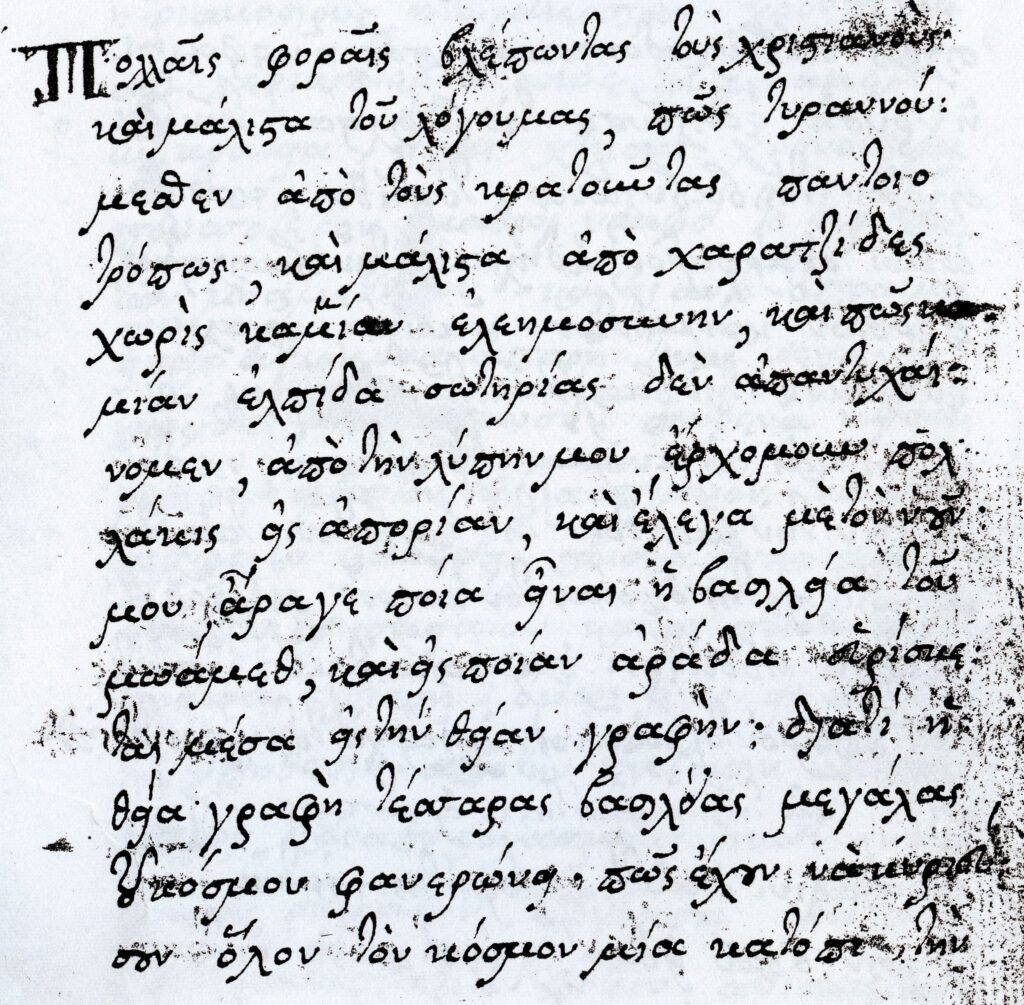 Πολλαῖς φοραῖς βλέπωντας τοὺς χριστιανοὺς
καὶ μάλιστα τοῦ λόγου μας, πῶς τυραννού:
μεθεν ἀπὸ τοὺς κρατοῦντας παντοιο
τρόπως, καὶ μάλιστα ἀπὸ χαρατζίδες
χωρὶς καμμίαν ἐλεημοσύνην, καὶ πῶς
μίαν ἐλπίδα σωτηρίας δὲν ἀπαντυχαί:
νομεν, ἀπὸ τὴν λύπην μου ἔρχομουν πολ
λάκις εἰς ἀπορίαν, καὶ ἔλεγα μὲ τὸν νοῦν
μου, ἆραγε ποία εἶναι ἡ βασιλεία τοῦ
μωάμεθ, καὶ εἰς ποίαν ἀράδα εὑρίσκε:
ται μέσα εἰς τὴν θείαν γραφὴν; διατὶ ἡ
θεία γραφὴ τέσσαρας βασιλείας μεγάλας
τοῦ κόσμου φανερώνει, πῶς ἔχουν νὰ κυριεύ
σουν ὅλον τὸν κόσμον μία κατόπι, τὴν